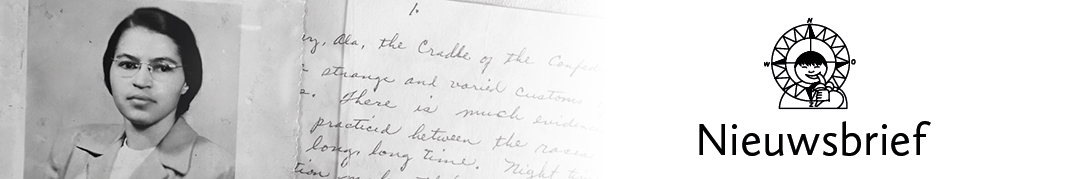 1.
ry, Ala, the Cradle of the Confed
strange and varied customs
e. There is much eviden
practiced between the races
long, long time. Night
tion
N
W O
Nieuwsbrief